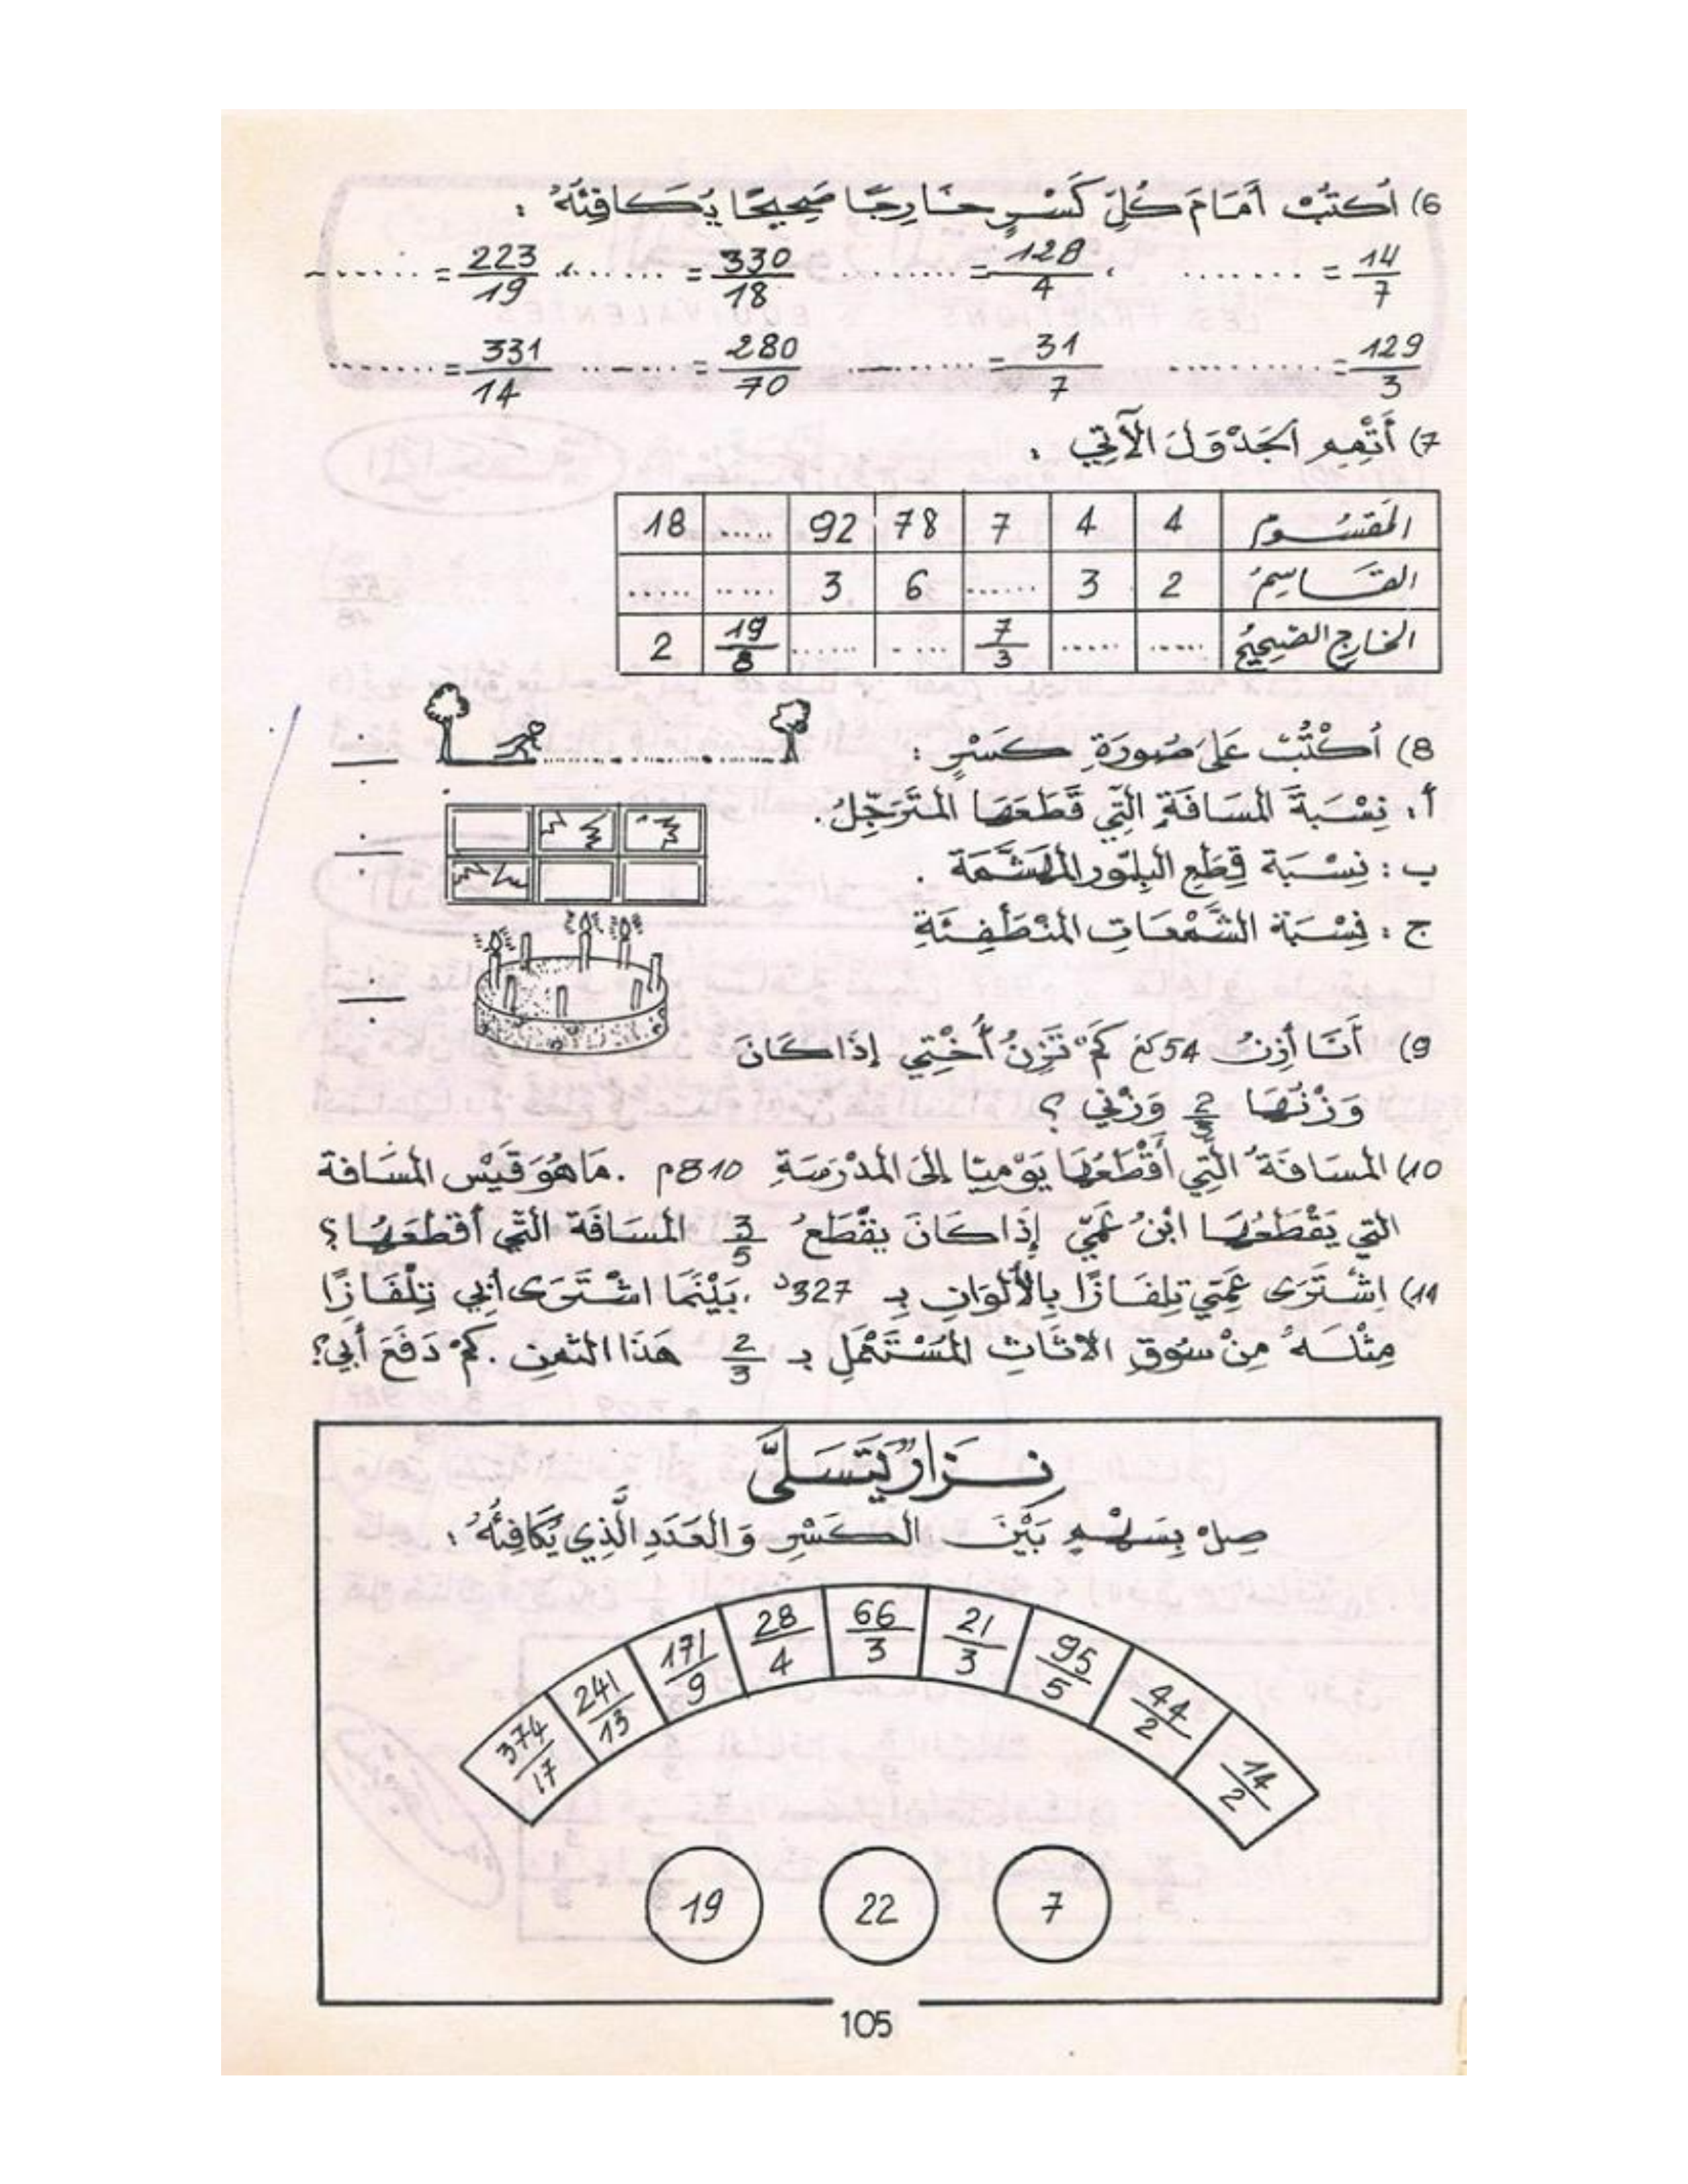 6) أُكتُبْ أَمَامَ كُلِّ كَسْرٍ خَارِجًا صَحِيحًا يُكَافِئُهُ :
14/7 = ....... ، 128/4 = ........ 330/18 = ....... ، 223/19 = .......
129/3 = .......... 31/7 = .......... 280/70 = ....... 331/14 = .......
7) أَتْمِم الجَدْوَلَ الآتِي :
المَقسُوم 4 4 7 78 92 ..... 18
القَاسِمُ 2 3 ...... 6 3 ..... .....
الخارج الصّحِيحُ ..... ..... 7/3 ..... ...... 19/8 2
8) أُكْتُبْ عَلَى صُورَةِ كَسْرٍ :
أ : نِسْبَةَ المَسَافَةِ الَّتِي قَطَعَهَا المُتَرَجِّلُ .
ب : نِسْبَةَ قِطَعِ البِلّورِ المُهَشَّمَة .
ج : نِسْبَةَ الشَّمْعَاتِ المُنْطَفِئَةِ
9) أَنَا أَزِنُ 54 كغ كَمْ تَزِنُ أُخْتِي إِذَا كَانَ
وَزْنُهَا 2/3 وَزْنِي ؟
10) المسَافَةُ الَّتِي أَقْطَعُهَا يَوْمِيًّا إِلَى المَدْرَسَةِ 810 م . مَا هُوَ قَيْسُ المسَافة
التِي يَقْطَعُهَا ابْنُ عَمِّي إِذَا كَانَ يَقْطَعُ 3/5 المسَافَةَ التِّي أَقطَعُهَا ؟
11) اِشْتَرَى عَمِّي تِلفَازًا بِالأَلْوَانِ بِـ 327د ، بَيْنَمَا اشْتَرَى أَبِي تِلْفَازًا
مِثْلَهُ مِنْ سُوقِ الاثَاثِ المُسْتَعْمَلِ بـ 2/3 هَذَا الثمنِ . كَمْ دَفَعَ أَبِي ؟
نِزَارٌ يَتَسَلَّى
صِلْ بِسَهْمٍ بَيْنَ الكَسْرِ وَالعَدَدِ الَّذِي يُكَافِئُهُ :
374/17 241/13 171/9 28/4 66/3 21/3 95/5 44/2 14/2
19 22 7
105